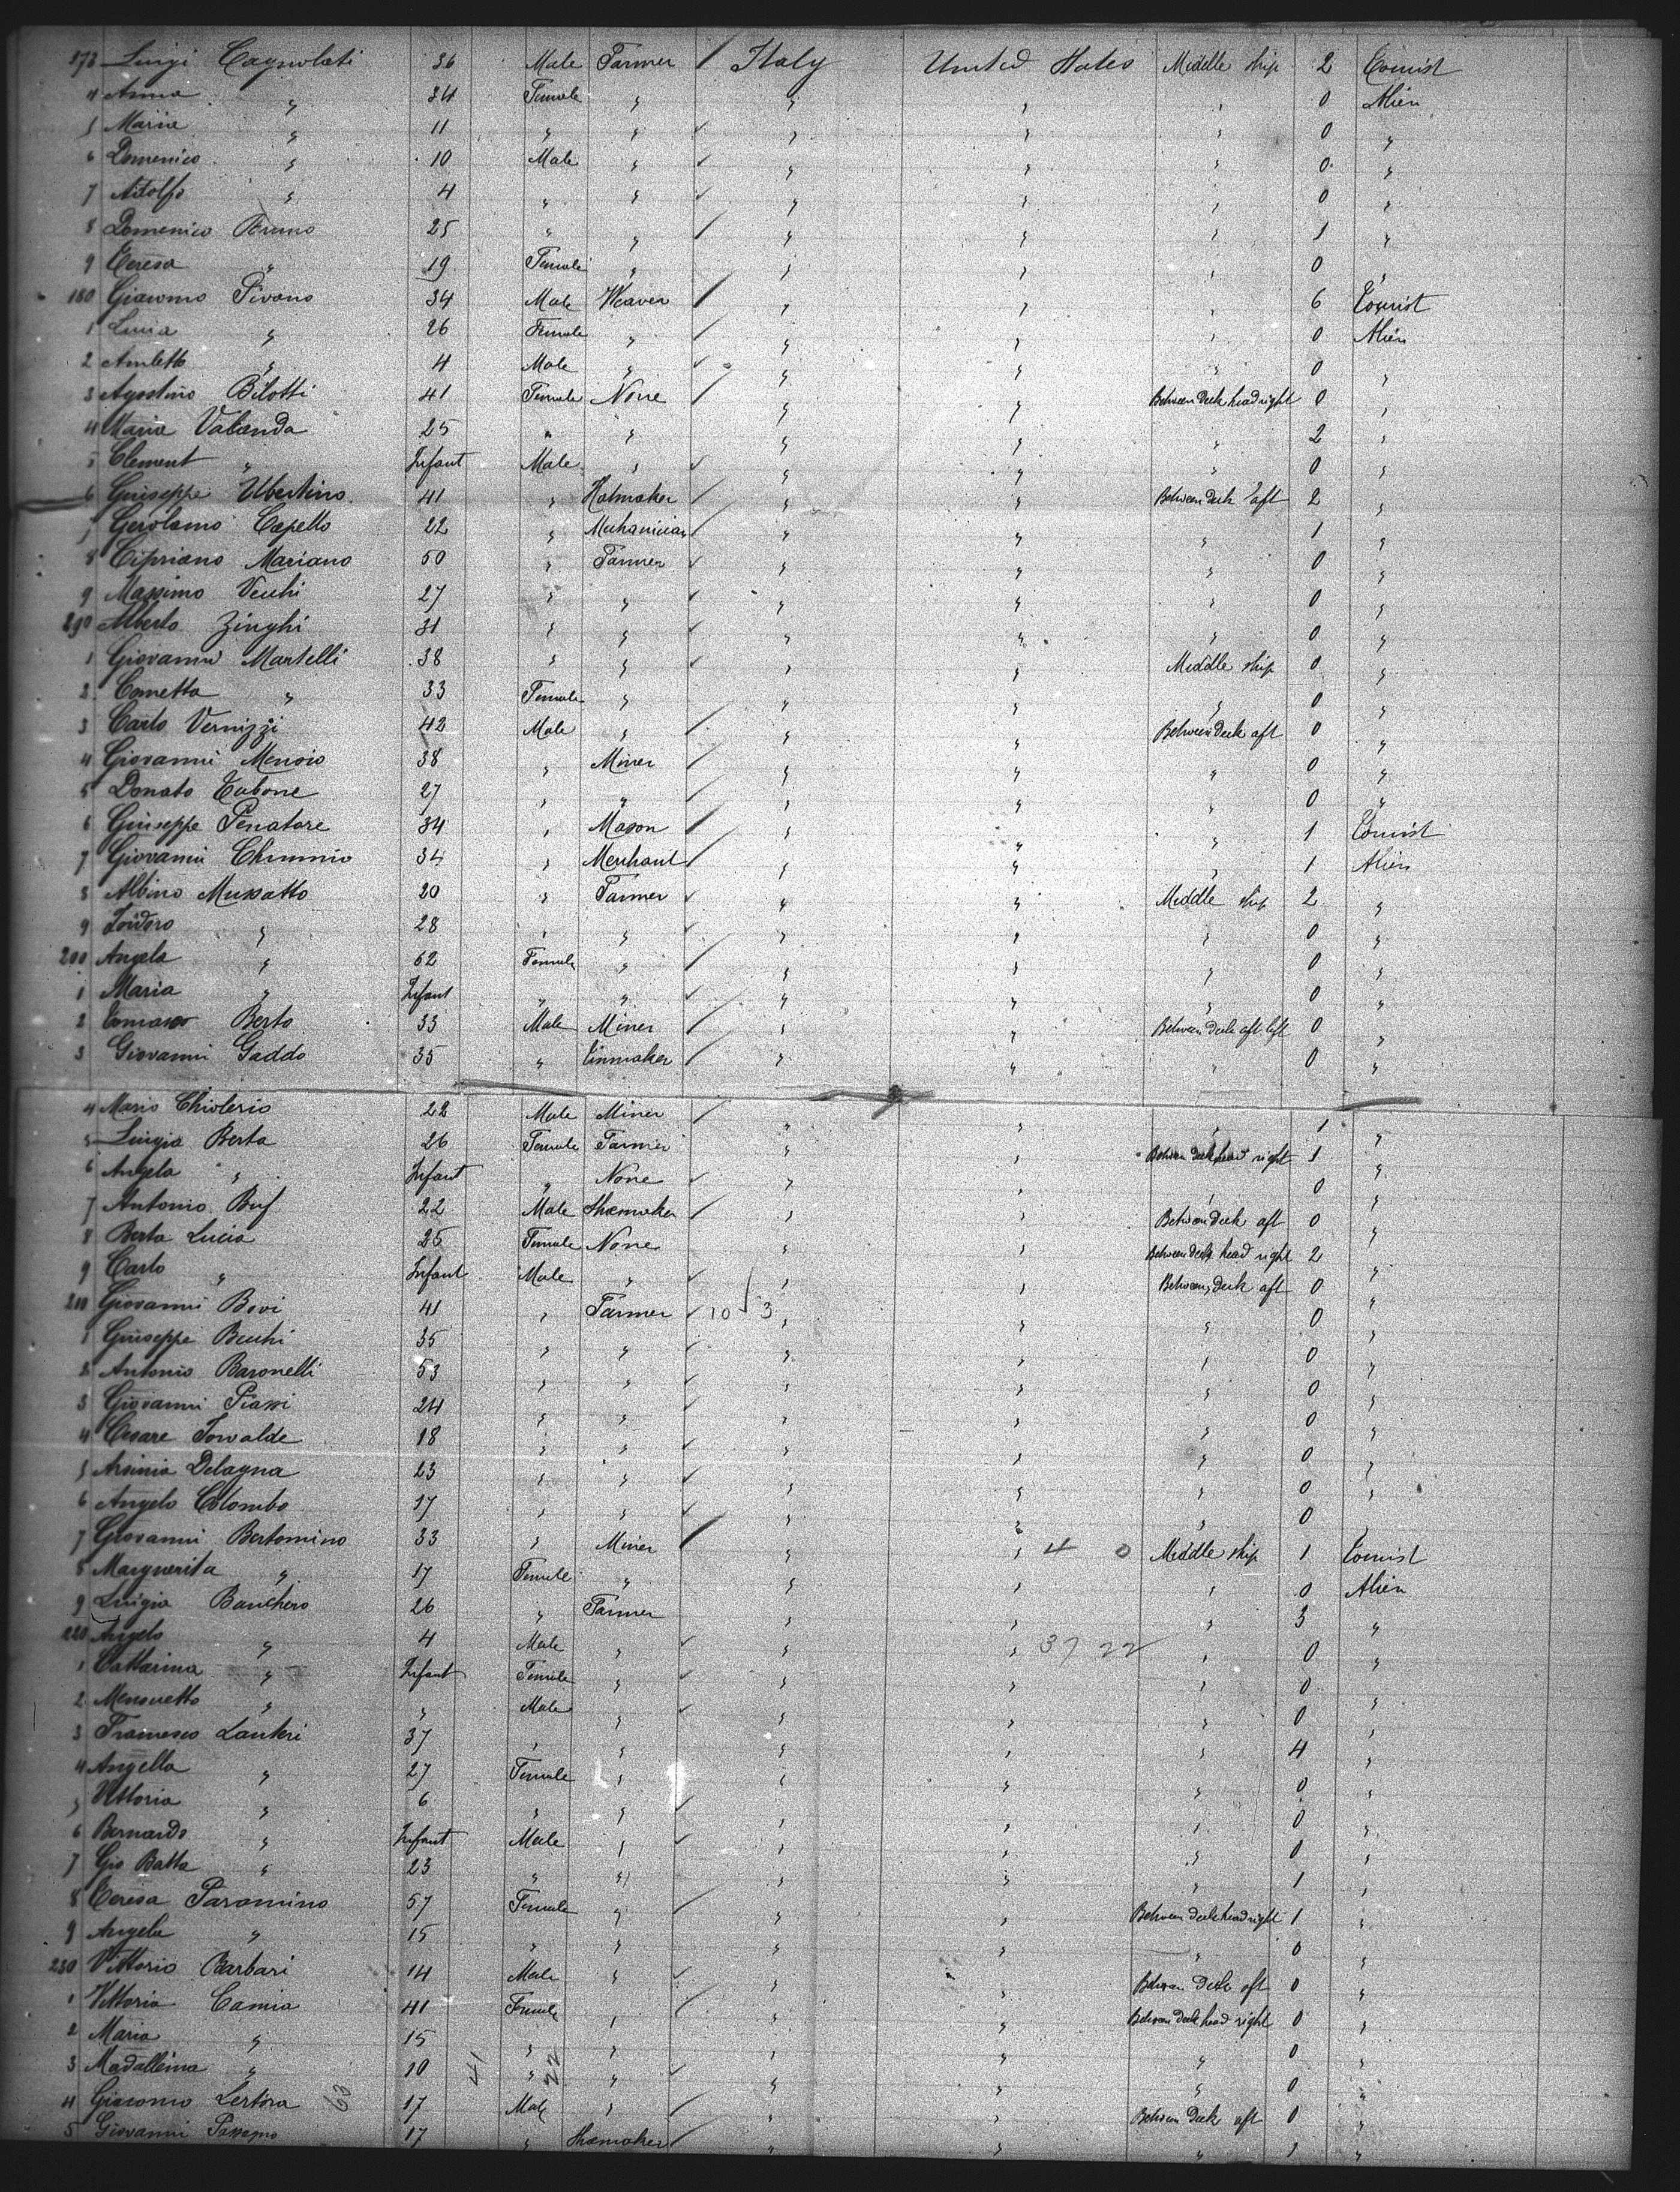 173 Luigi Cagnolati 36 Male Farmer / Italy United States Middle ship 2 Tourist
4 Anna " 34 Female " " " " 0 Alien
5 Maria " 11 " " ✓ " " " 0 "
6 Domenico " 10 Male " ✓ " " " 0 "
7 Adolfo " 4 " " ✓ " " " 0 "
8 Domenico Bruno 25 " " / " " " 1 "
9 Teresa " 19 Female " " " " 0 "
180 Giacomo Pivano 34 Male Weaver / " " " 6 Tourist
1 Lucia " 26 Female " / " " " 0 Alien
2 Amletto " 4 Male " ✓ " " " 0 "
3 Agostino Bilotti 41 Female None / " " Between deck head right 0 "
4 Maria Valanda 25 " " " " " 2 "
5 Clement " Infant Male " ✓ " " " 0 "
6 Giuseppe Ubertino 41 " Hatmaker / " " Between deck aft 2 "
7 Gerolamo Capello 22 " Mechanician / " " " 1 "
8 Cipriano Mariano 50 " Farmer ✓ " " " 0 "
9 Massimo Vecchi 27 " " ✓ " " " 0 "
190 Alberto Zinghi 31 " " ✓ " " " 0 "
1 Giovanni Martelli 38 " " ✓ " " Middle ship 0 "
2 Cometta " 33 Female " " " " 0 "
3 Carlo Vernizzi 42 Male " / " " Between deck aft 0 "
4 Giovanni Mensio 38 " Miner / " " " 0 "
5 Donato Tabone 27 " " / " " " 0 "
6 Giuseppe Penatore 34 " Mason / " " " 1 Tourist
7 Giovanni 34 " Merchant / " " " 1 Alien
8 Albino Mussatto 20 " Farmer ✓ " " Middle ship 2 "
9 Isidoro " 28 " " ✓ " " " 0 "
200 Angela " 62 Female " / " " " 0 "
1 Maria " Infant " " ✓ " " " 0 "
2 Tomaso Berto 33 Male Miner / " " Between deck aft left 0 "
3 Giovanni Gaddo 35 " Tinmaker / " " " 0 "
4 Mario Chiolerio 22 Male Miner / " " " 1 "
5 Luigia Berta 26 Female Farmer " " Between deck head right 1 "
6 Angela " Infant " None ✓ " " " 0 "
7 Antonio Buf 22 Male Shoemaker / " " Between deck aft 0 "
8 Berta Lucia 25 Female None " " Between deck head right 2 "
9 Carlo " Infant Male " ✓ " " Between deck aft 0 "
210 Giovanni Bovi 41 " Farmer ✓ 10 3 " " " 0 "
1 Giuseppe Bechi 35 " " ✓ " " " 0 "
2 Antonio Baronelli 53 " " ✓ " " " 0 "
3 Giovanni Piassi 24 " " ✓ " " " 0 "
4 Cesare 18 " " ✓ " " " 0 "
5 Arsinia Delagna 23 " " ✓ " " " 0 "
6 Angelo Colombo 17 " " ✓ " " " 0 "
7 Giovanni Bertomino 33 " Miner / " " 4 0 Middle ship 1 Tourist
8 Marguerita " 17 Female " " " " 0 Alien
9 Luigia Banchero 26 " Farmer " " " 3 "
220 Angelo " 4 Male " ✓ " " 37 22 " 0 "
1 Cattarina " Infant Female " ✓ " " " 0 "
2 " " Male " ✓ " " " 0 "
3 Francesco Lanteri 37 " " " " " 4 "
4 Angella " 27 Female " " " " 0 "
5 Vittoria " 6 " " ✓ " " " 0 "
6 Bernardo " Infant Male " ✓ " " " 0 "
7 Gio Batta " 23 " " " " " 1 "
8 Teresa Paromino 57 Female " / " " Between deck head right 1 "
9 Angela " 15 " " " " " 0 "
230 Vittorio Barbari 14 Male " ✓ " " Between Deck aft 0 "
1 Vittoria Camia 41 Female " / " " Between Deck head right 0 "
2 Maria " 15 " " " " " 0 "
3 Madallena " 10 41 " 22 " ✓ " " " 0 "
4 Giacomo Lertora 63 17 Male " / " " Between Deck aft 0 "
5 Giovanni 17 " Shoemaker / " " " "